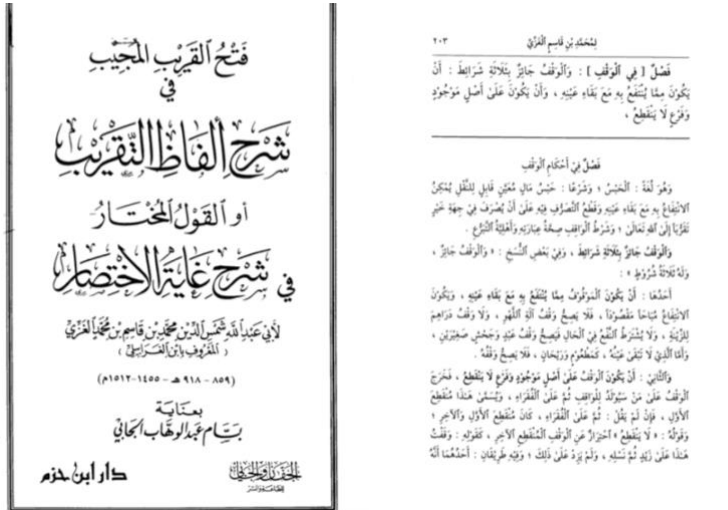 فَتْحُ القَرِيبِ المُجِيبِ
في
شَرْحِ أَلْفَاظِ التَّقْرِيبِ
أو القَوْلُ المُخْتَارُ
في شَرْحِ غَايَةِ الاخْتِصَارِ
لأبي عبد الله شمس الدين محمد بن قاسم بن محمد الغزي
( المعروف بابن الغرابيلي )
(٨٥٩ - ٩١٨ هـ - ١٤٥٥-١٥١٢م)
بعناية
بسام عبد الوهاب الجابي
الجفان والجابي
للطباعة والنشر
دار ابن حزم
لِمُحَمَّدِ بْنِ قَاسِمٍ الْغَزِّيِّ
٢٠٣
فَصْلٌ [ فِي الْوَقْفِ ] : وَالْوَقْفُ جَائِزٌ بِثَلَاثَةِ شَرَائِطَ : أَنْ
يَكُونَ مِمَّا يُنْتَفَعُ بِهِ مَعَ بَقَاءِ عَيْنِهِ ، وَأَنْ يَكُونَ عَلَىٰ أَصْلٍ مَوْجُودٍ
وَفَرْعٍ لَا يَنْقَطِعُ ،
فَصْلٌ فِي أَحْكَامِ الْوَقْفِ
وَهُوَ لُغَةً : الْحَبْسُ ؛ وَشَرْعًا : حَبْسُ مَالٍ مُعَيَّنٍ قَابِلٍ لِلنَّقْلِ يُمْكِنُ
الانْتِفَاعُ بِهِ مَعَ بَقَاءِ عَيْنِهِ وَقَطْعُ التَّصَرُّفِ فِيهِ عَلَىٰ أَنْ يُصْرَفَ فِي جِهَةِ خَيْرٍ
تَقَرُّبًا إِلَى اللهِ تَعَالَىٰ ؛ وَشَرْطُ الْوَاقِفِ صِحَّةُ عِبَارَتِهِ وَأَهْلِيَّةُ التَّبَرُّعِ .
وَالْوَقْفُ جَائِزٌ بِثَلَاثَةِ شَرَائِطَ ، وَفِي بَعْضِ النُّسَخِ : « وَالْوَقْفُ جَائِزٌ ،
وَلَهُ ثَلَاثَةُ شُرُوطٍ » :
أَحَدُهَا : أَنْ يَكُونَ الْمَوْقُوفُ مِمَّا يُنْتَفَعُ بِهِ مَعَ بَقَاءِ عَيْنِهِ ، وَيَكُونُ
الانْتِفَاعُ مُبَاحًا مَقْصُودًا ، فَلَا يَصِحُّ وَقْفُ آلَةِ اللَّهْوِ ، وَلَا وَقْفُ دَرَاهِمَ
لِلزِّينَةِ ، وَلَا يُشْتَرَطُ النَّفْعُ فِي الْحَالِ فَيَصِحُّ وَقْفُ عَبْدٍ وَجَحْشٍ صَغِيرَيْنِ ،
وَأَمَّا الَّذِي لَا تَبْقَىٰ عَيْنُهُ ، كَمَطْعُومٍ وَرَيْحَانٍ ، فَلَا يَصِحُّ وَقْفُهُ .
وَالثَّانِي : أَنْ يَكُونَ الْوَقْفُ عَلَىٰ أَصْلٍ مَوْجُودٍ وَفَرْعٍ لَا يَنْقَطِعُ ، فَخَرَجَ
الْوَقْفُ عَلَىٰ مَنْ سَيُولَدُ لِلْوَاقِفِ ثُمَّ عَلَىٰ الْفُقَرَاءِ ، وَيُسَمَّىٰ هَـٰذَا مُنْقَطِعَ
الْأَوَّلِ ، فَإِنْ لَمْ يَقُلْ : ثُمَّ عَلَىٰ الْفُقَرَاءِ ، كَانَ مُنْقَطِعَ الْأَوَّلِ وَالْآخِرِ ؛
وَقَوْلُهُ : « لَا يَنْقَطِعُ » احْتِرَازٌ عَنِ الْوَقْفِ الْمُنْقَطِعِ الْآخِرِ ، كَقَوْلِهِ : وَقَفْتُ
هَـٰذَا عَلَىٰ زَيْدٍ ثُمَّ نَسْلِهِ ، وَلَمْ يَزِدْ عَلَىٰ ذَلِكَ ؛ وَفِيهِ طَرِيقَانِ : أَحَدُهُمَا أَنَّهُ